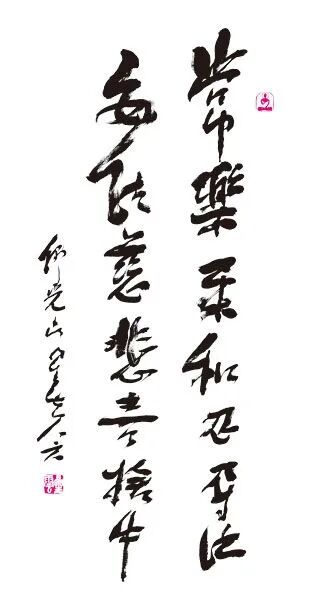 常樂柔和忍辱法
安住慈悲喜捨中
佛光山星雲八六